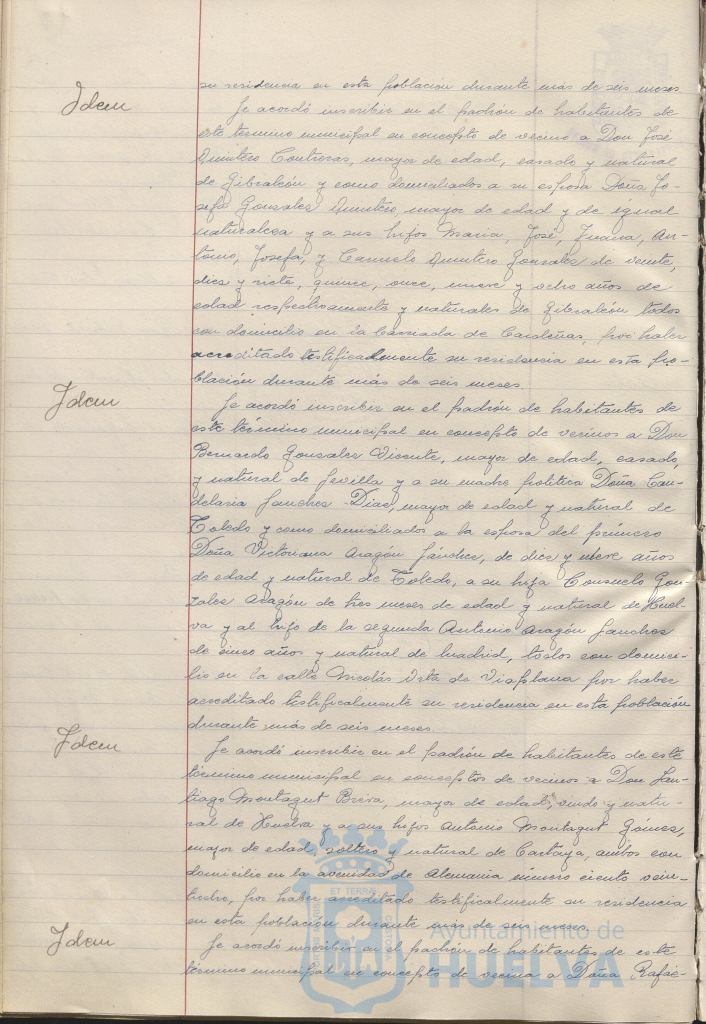 su residencia en esta población durante más de seis meses
Idem
Se acordó inscribir en el padrón de habitantes de
este término municipal en concepto de vecino a Don José
Quintero Contreras, mayor de edad, casado y natural
de Gibraleón y como domiciliados a su esposa Doña Jo-
sefa Gonzalez Quintero, mayor de edad y de igual
naturaleza y a sus hijos María, José, Juana, An-
tonio, Josefa, y Carmelo Quintero Gonzalez de veinte,
diez y siete, quince, once, nueve y ocho años de
edad respectivamente y naturales de Gibraleón todos
con domicilio en la barriada de Cardeñas, por haber
acreditado testificalmente su residencia en esta po-
blación durante más de seis meses.
Idem
Se acordó inscribir en el padrón de habitantes de
este término municipal en concepto de vecinos a Don
Bernardo Gonzalez Vicente, mayor de edad, casado,
y natural de Sevilla y a su madre política Doña Can-
delaria Sanchez Diaz, mayor de edad y natural de
Toledo y como domiciliados a la esposa del primero
Doña Victoriana Aragón Sánchez, de diez y nueve años
de edad y natural de Toledo, a su hija Consuelo Gon-
zalez Aragón de tres meses de edad y natural de Huel-
va y al hijo de la segunda Antonio Aragón Sanchez
de cinco años y natural de Madrid, todos con domici-
lio en la calle Nicolás Orta de Viaplana por haber
acreditado testificalmente su residencia en esta población
durante más de seis meses.
Idem
Se acordó inscribir en el padrón de habitantes de este
término municipal en conceptos de vecinos a Don San-
tiago Montagut Breva, mayor de edad, viudo y natu-
ral de Huelva y a sus hijos Antonio Montagut Gómez,
mayor de edad, soltero y natural de Cartaya, ambos con
domicilio en la avenida de Alemania número ciento vein-
por haber acreditado testificalmente su residencia
en esta población durante más de seis meses.
Idem
Se acordó inscribir en el padrón de habitantes de este
término municipal en concepto de vecina a Doña Rafae-
Ayuntamiento de
HUELVA